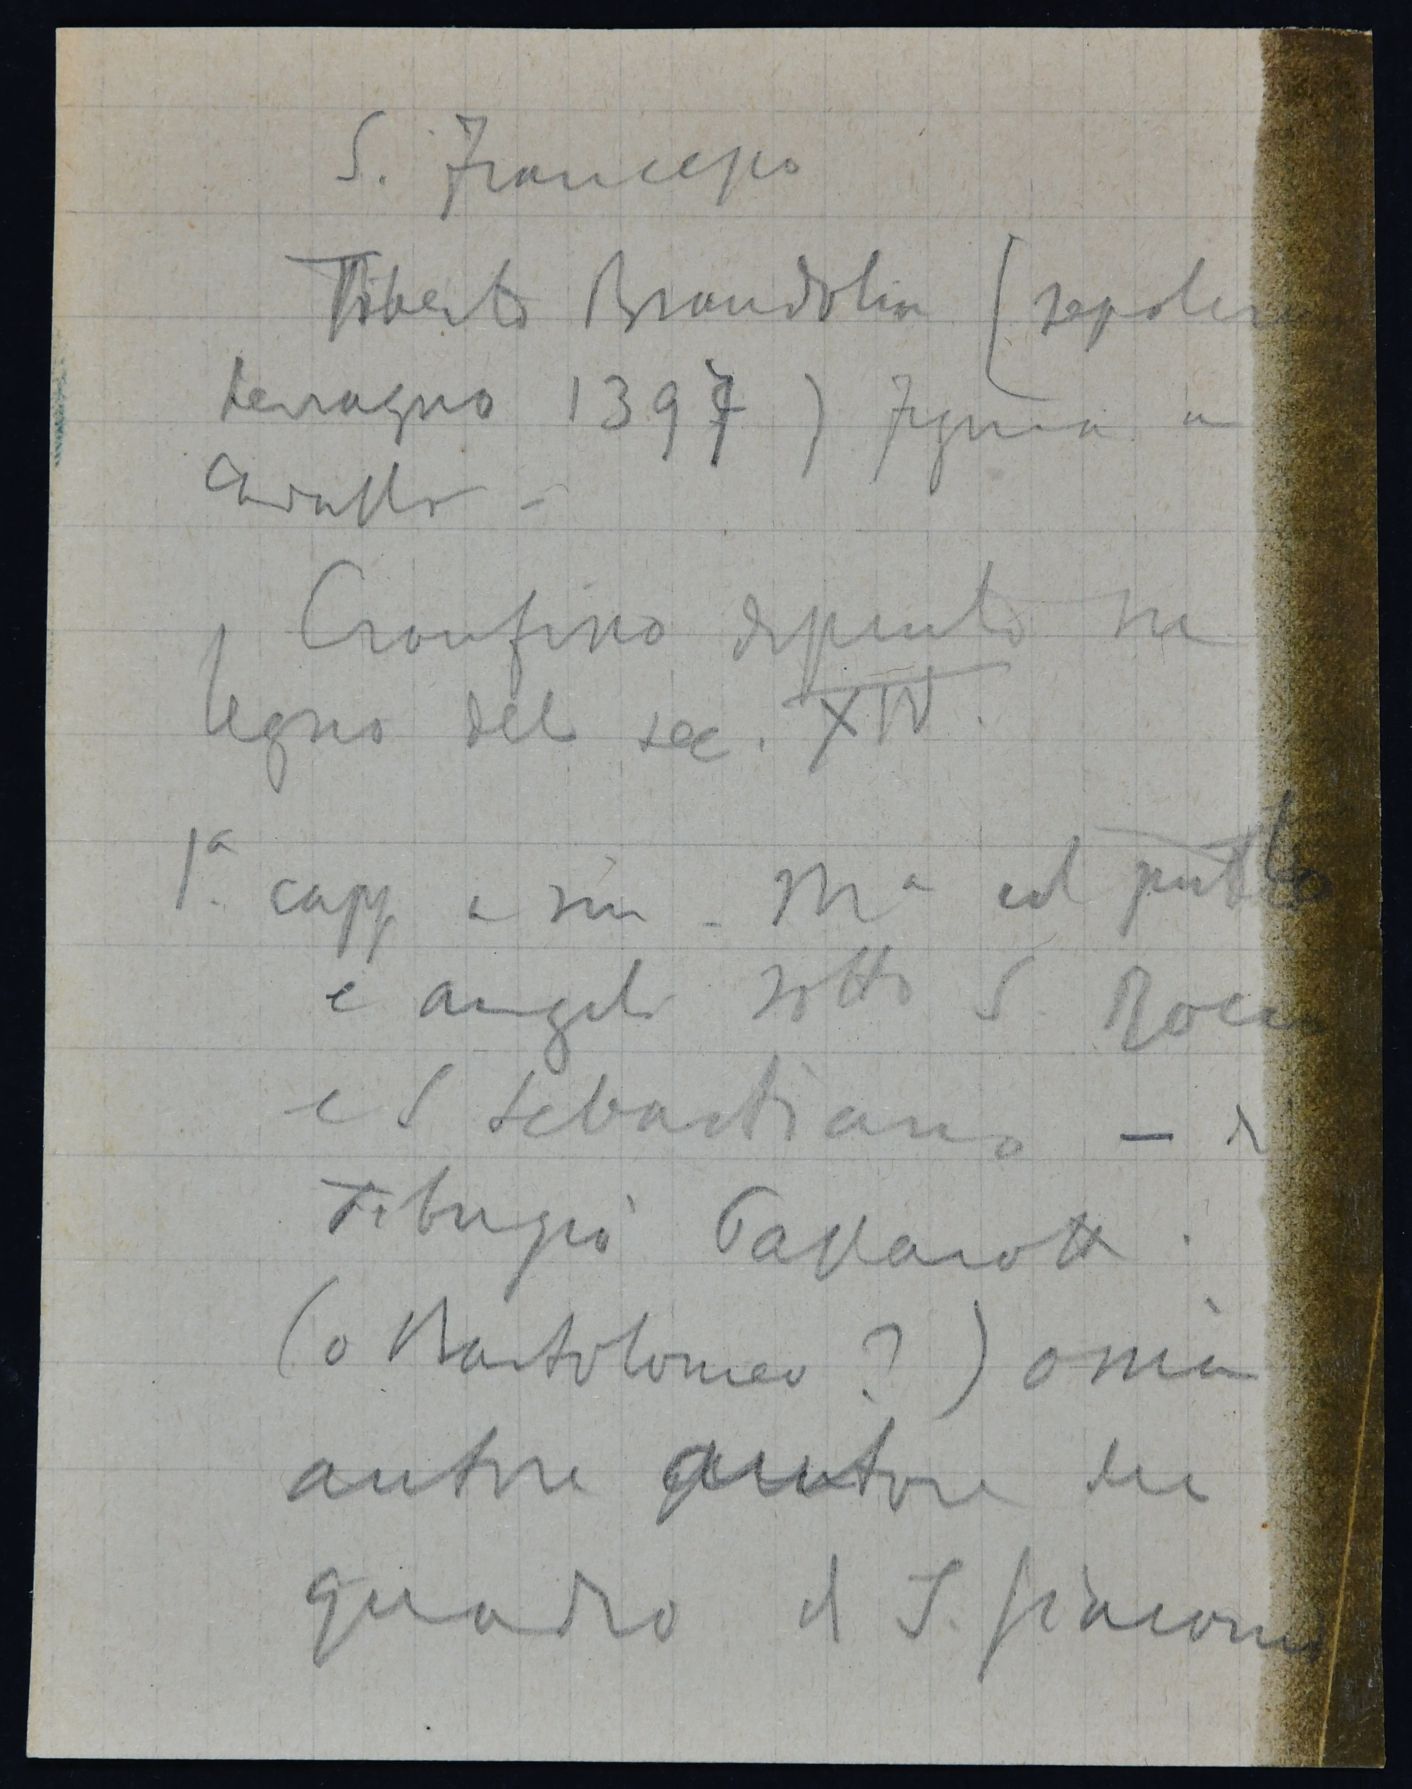 S. Francesco
Tiberto Brandolin (sepolcro
terragno 1397) figura a
cavallo -
Crocifisso dipinto su
legno del sec. XIV.
1ª capp. a sin - Mª col putto
e angeli sotto S. Rocco
e S Sebastiano - di
Tibuzio Passarotti.
(o Bartolomeo?) ossia
autore autore del
quadro di S. Giacomo